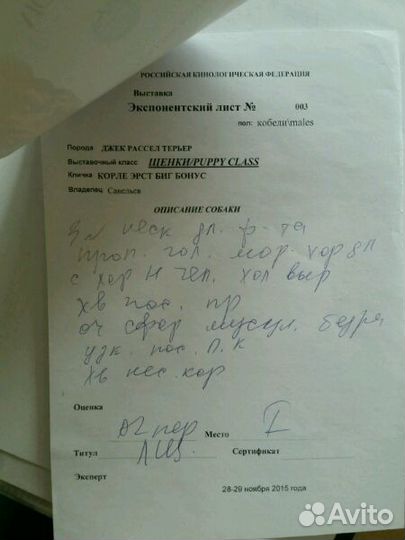 РОССИЙСКАЯ КИНОЛОГИЧЕСКАЯ ФЕДЕРАЦИЯ
Выставка
Экспонентский лист № 003
пол: кобели\males
Порода ДЖЕК РАССЕЛ ТЕРЬЕР
Выставочный класс ЩЕНКИ/PUPPY CLASS
Кличка КОРЛЕ ЭРСТ БИГ БОНУС
Владелец Савельев
ОПИСАНИЕ СОБАКИ
неск дл. ф-та
проп. гол. мор. хор дл
с хор Н чел. хол выр
хв пос. пр
оч сфер мускул. бедра
узк. пос. п. к
хв нес. кор
Оценка оч пер Место I
Титул ЛЩ Сертификат
Эксперт
28-29 ноября 2015 года
Avito